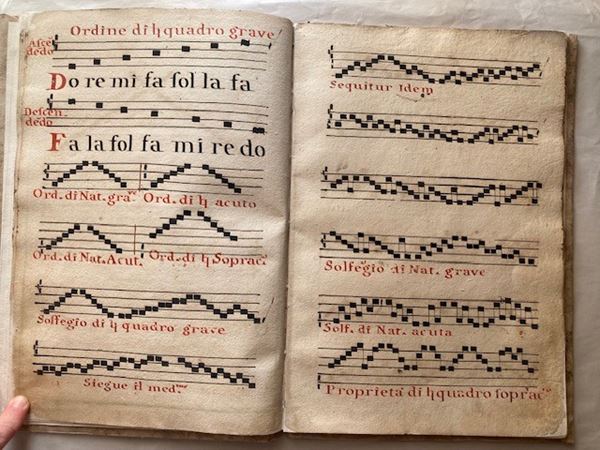 Ordine di ♮ quadro grave
Ascen dedo
Do re mi fa sol la fa
Descen dedo
Fa la sol fa mi re do
Ord. di Nat. gra.ve Ord. di ♮ acuto
Ord. di Nat. Acut. Ord. di ♮ Soprac.
Solfegio di ♮ quadro grave
Siegue il med.mo
Sequitur Idem
Solfegio di Nat. grave
Solf. di Nat. acuta
Proprieta' di ♮ quadro soprac.